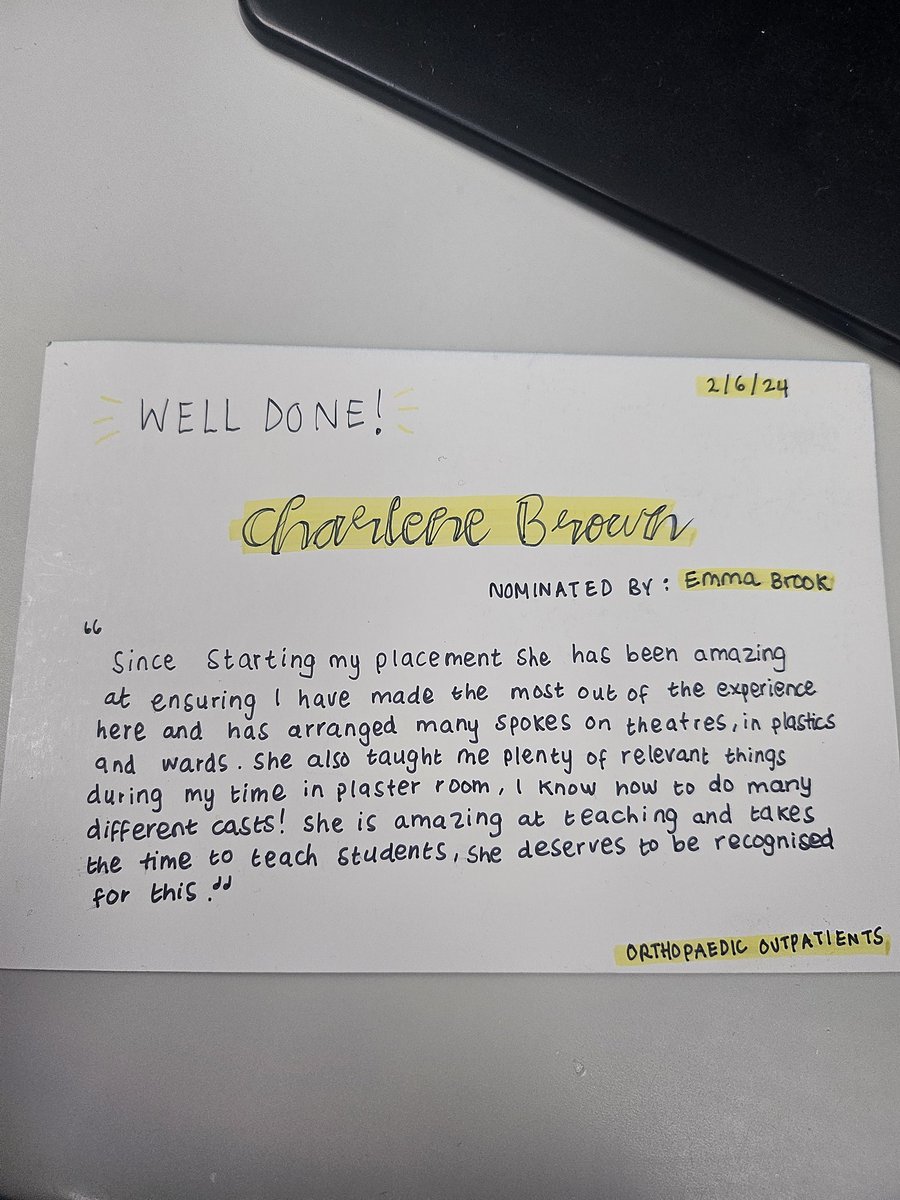 WELL DONE!
2/6/24
Charlene Brown
NOMINATED BY: Emma Brook
“
Since starting my placement she has been amazing
at ensuring I have made the most out of the experience
here and has arranged many spokes on theatres, in plastics
and wards. She also taught me plenty of relevant things
during my time in plaster room, I know how to do many
different casts! She is amazing at teaching and takes
the time to teach students, she deserves to be recognised
for this.”
ORTHOPAEDIC OUTPATIENTS